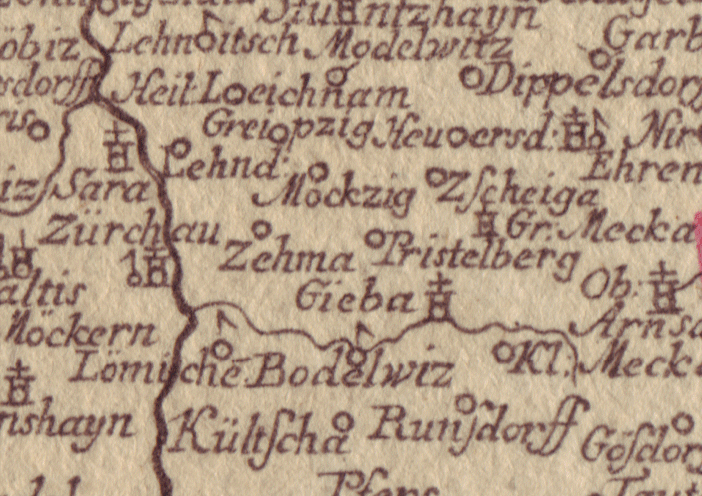 Stuʜntzhayn
öbiz Lehnditsch Modelwitz Garb
sdorff Heil: Loeichnam Dippelsdor
ris Greiopzig Heuversd: Nir
Lehnd: Ehren
iz Sara Möckzig Zscheiga
Zürchau Gr: Mecka
Zehma Pristelberg
altis Gieba Ob:
Möckern Arnsd
Lömische Bodelwiz Kl: Mecka
nshayn Kültscha Runsdorff Gösdor